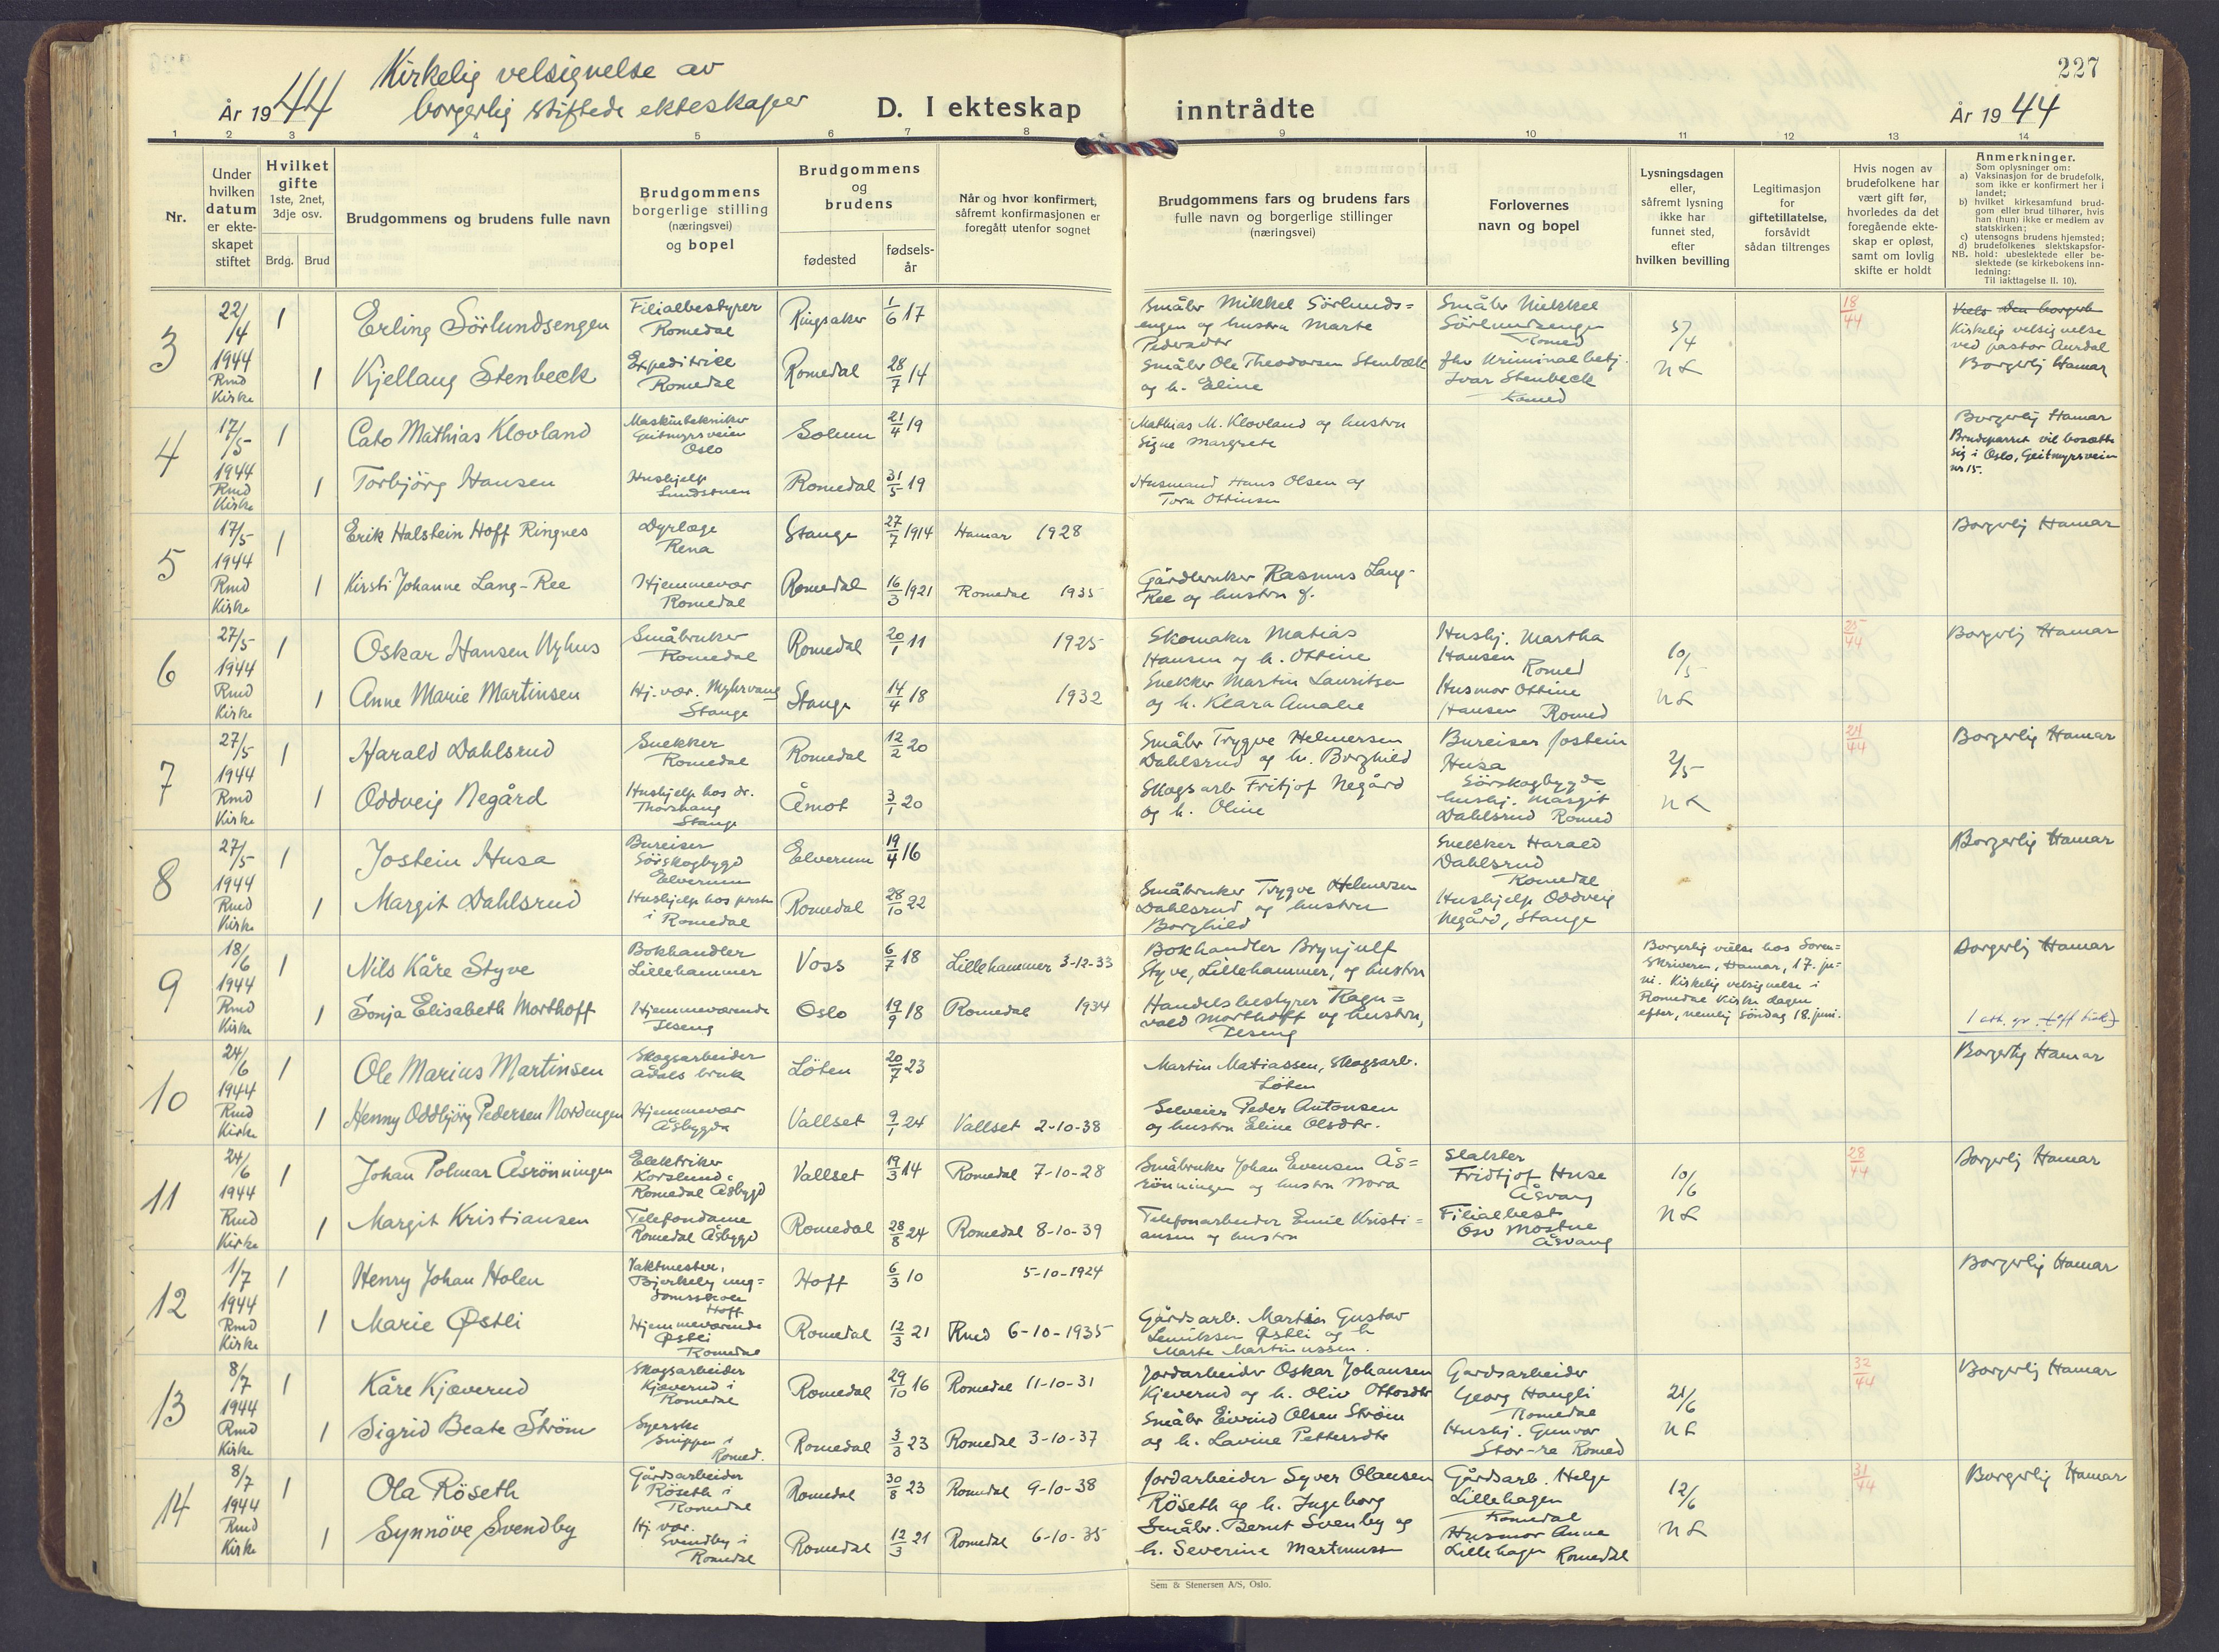 227
Kirkelig velsignelse av
borgerlig stiftede ekteskaper
År 1944
D. I ekteskap inntrådte
År 1944
1 2 3 4 5 6 7 8 9 10 11 12 13 14
Nr.
Under
hvilken
datum
er ekte-
skapet
stiftet
Hvilket
gifte
1ste, 2net,
3dje osv.
Brdg. Brud
Brudgommens og brudens fulle navn
Brudgommens
borgerlige stilling
(næringsvei)
og bopel
Brudgommens
og
brudens
fødested
fødsels-
år
Når og hvor konfirmert,
såfremt konfirmasjonen er
foregått utenfor sognet
Brudgommens fars og brudens fars
fulle navn og borgerlige stillinger
(næringsvei)
Forlovernes
navn og bopel
Lysningsdagen
eller,
såfremt lysning
ikke har
funnet sted,
efter
hvilken bevilling
Legitimasjon
for
giftetillatelse,
forsåvidt
sådan tiltrenges
Hvis nogen av
brudefolkene har
vært gift før,
hvorledes da det
foregående ekte-
skap er opløst,
samt om lovlig
skifte er holdt
Anmerkninger.
Som oplysninger om:
a) Vaksinasjon for de brudefolk,
som ikke er konfirmert her i
landet;
b) hvilket kirkesamfund brud-
gom eller brud tilhører, hvis
han (hun) ikke er medlem av
statskirken;
c) utensogns brudens hjemsted;
d) brudefolkenes slektskapsfor-
NB. hold: ubeslektede eller be-
slektede (se kirkebokens inn-
ledning:
Til iakttagelse II. 10).
3
22/4
1944
Rmd
Kirke
1
Erling Sörlundsengen
Filialbestyrer
Romedal
Ringsaker
1/6 17
Småbr Mikkel Sörlunds=
engen og hustru Marte
Pedersdtr
Småbr Mikkel
Sörlundsengen
Romed
5/4
18/44
Kirkelig velsignelse
ved pastor Aurdal
Borgerlig Hamar
1
Kjellaug Stenbeck
Expeditrice
Romedal
Romedal
28/7 14
Småbr Ole Theodorsen Stenbæk
og h. Eline
fhv Kriminalbetj.
Ivar Stenbeck
Romed
4
17/5
1944
Rmd
Kirke
1
Cato Mathias Klovland
Maskintekniker
Geitmyrsveien
Oslo
Solum
21/4 19
Mathias M. Klovland og hustru
Signe Margrete
Borgerlig Hamar
Brudeparret vil bosætte
sig i Oslo, Geitmyrsveien
nr 15.
1
Torbjörg Hansen
Hushjelp
Romedal
31/5 19
Husmand Hans Olsen og
Tora Ottinsen
5
17/5
1944
Rmd
Kirke
1
Erik Halstein Hoff Ringnes
Dyrlæge
Rena
Stange
27/7 1914
Hamar 1928
Borgerlig Hamar
1
Kirsti Johanne Lang-Ree
Hjemmevær
Romedal
Romedal
16/3 1921
Romedal 1935
Gårdbruker Rasmus Lang-
Ree og hustru
6
27/5
1944
Rmd
Kirke
1
Oskar Hansen Nyhus
Småbruker
Romedal
Romedal
20/1 11
1925
Skomaker Matias
Hansen og h. Ottine
Hushj. Martha
Hansen
Romed
10/5
25/44
Borgerlig Hamar
1
Anne Marie Martinsen
Hj. vær. Myhrvang
Stange
Stange
14/4 18
1932
Snekker Martin Lauritsen
og h. Klara Amalie
Husmor Ottine
Hansen Romed
7
27/5
1944
Rmd
Kirke
1
Harald Dahlsrud
Snekker
Romedal
Romedal
12/2 20
Småbr Trygve Helmersen
Dahlsrud og h. Borghild
Bureiser Jostein
Husa
Sörskogbygda
2/5
24/44
Borgerlig Hamar
1
Oddveig Negård
Hushjelp hos dr.
Thorshaug
Stange
Åmot
3/1 20
Skogsarb Fritjof Negård
og h. Oline
hushj. Margit
Dahlsrud Romed
8
27/5
1944
Rmd
Kirke
1
Jostein Husa
Bureiser
Sörskogbygd
Elverum
Elverum
19/4 16
Snekker Harald
Dahlsrud
Romedal
Borgerlig Hamar
1
Margit Dahlsrud
Hushjelp hos
i Romedal
Romedal
28/10 22
Småbruker Trygve Helmersen
Dahlsrud og hustru
Borghild
Hushjelp Oddveig
Negård, Stange
9
18/6
1944
Rmd
Kirke
1
Nils Kåre Styve
Bokhandler
Lillehammer
Voss
6/7 18
Lillehammer 3-12-33
Bokhandler Brynjulf
Styve, Lillehammer, og hustru
Borgerlig vielse hos Soren=
skriveren, Hamar, 17. ju=
ni. Kirkelig velsignelse i
Romedal Kirke dagen
efter, nemlig söndag 18. juni.
Borgerlig Hamar
1
Sonja Elisabeth Morthoff
Hjemmeværende
Ilseng
Oslo
19/9 18
Romedal 1934
Handelsbestyrer Ragn=
vald Morthoff og hustru,
Ilseng
10
24/6
1944
Rmd
Kirke
1
Ole Marius Martinsen
Skogsarbeider
Ådals bruk
Löten
20/7 23
Martin Matiassen, Skogsarb.
Löten
Borgerlig Hamar
1
Henny Oddbjörg Pedersen Nordengen
Hjemmevær
Åsbygda
Vallset
9/1 24
Vallset 2-10-38
Selveier Peder Antonsen
og hustru Eline Olsdtr.
11
24/6
1944
Rmd
Kirke
1
Johan Polmar Åsrönningen
Elektriker
Korslund i
Romedal Åsbygd
Vallset
19/3 14
Romedal 7-10-28
Småbruker Johan Evensen Ås=
rönningen og hustru Nora
Slakter
Fridtjof Huse
Åsvang
10/6
28/44
Borgerlig Hamar
1
Margit Kristiansen
Telefondame
Romedal Åsbygd
Romedal
28/8 24
Romedal 8-10-39
Telefonarbeider Emil Kristi=
ansen og hustru
Filialbest.
Osv Mostue
Åsvang
12
1/7
1944
Rmd
Kirke
1
Henry Johan Holen
Vaktmester,
Bjerkely ung=
domsskole
Hoff
Hoff
6/3 10
5-10-1924
Borgerlig Hamar
1
Marie Østli
Hjemmeværende
Østli
Romedal
Romedal
12/3 21
Rmd 6-10-1935
Gårdsarb. Martin Gustav
Østli og h
Marte Martinussen.
13
8/7
1944
Rmd
Kirke
1
Kåre Kjæverud
Skogsarbeider
Kjæverud i
Romedal
Romedal
29/10 16
Romedal 11-10-31
Jordarbeider Oskar Johansen
Kjeverud og h. Oliv Ottosdtr
Gardsarbeider
Georg Haugli
Romedal
21/6
32/44
Borgerlig Hamar
1
Sigrid Beate Ström
Syerske
Snippen i
Romed.
Romedal
3/3 23
Romedal 3-10-37
Småbr Eivind Olsen Ström
og h. Lavine Pettersdtr
Hushj. Gunvor
Stor-re Romed
14
8/7
1944
Rmd
Kirke
1
Ola Röseth
Gårdsarbeider
Röseth i
Romedal
Romedal
30/8 23
Romedal 9-10-38
Jordarbeider Syver Olausen
Röseth og h. Ingeborg
Gårdsarb. Helge
Lillehagen
Romedal
12/6
31/44
Borgerlig Hamar
1
Synnöve Svendby
Hj. vær.
Svendby i
Romedal
Romedal
12/3 21
Romedal 6-10-35
Småbr. Bernt Svenby og
h. Severine Martinuss
Husmor Anna
Lillehagen Romedal
Sem & Stenersen A/S, Oslo.